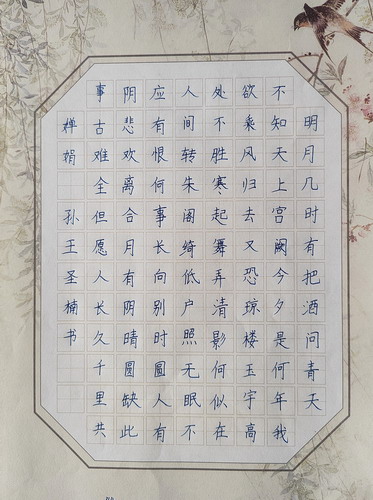 明月几时有把酒问青天
不知天上宫阙今夕是何年我
欲乘风归去又恐琼楼玉宇高
处不胜寒起舞弄清影何似在
人间转朱阁绮低户照无眠不
应有恨何事长向别时圆人有
阴悲欢离合月有阴晴圆缺此
事古难全但愿人长久千里共
婵娟 孙王圣楠书